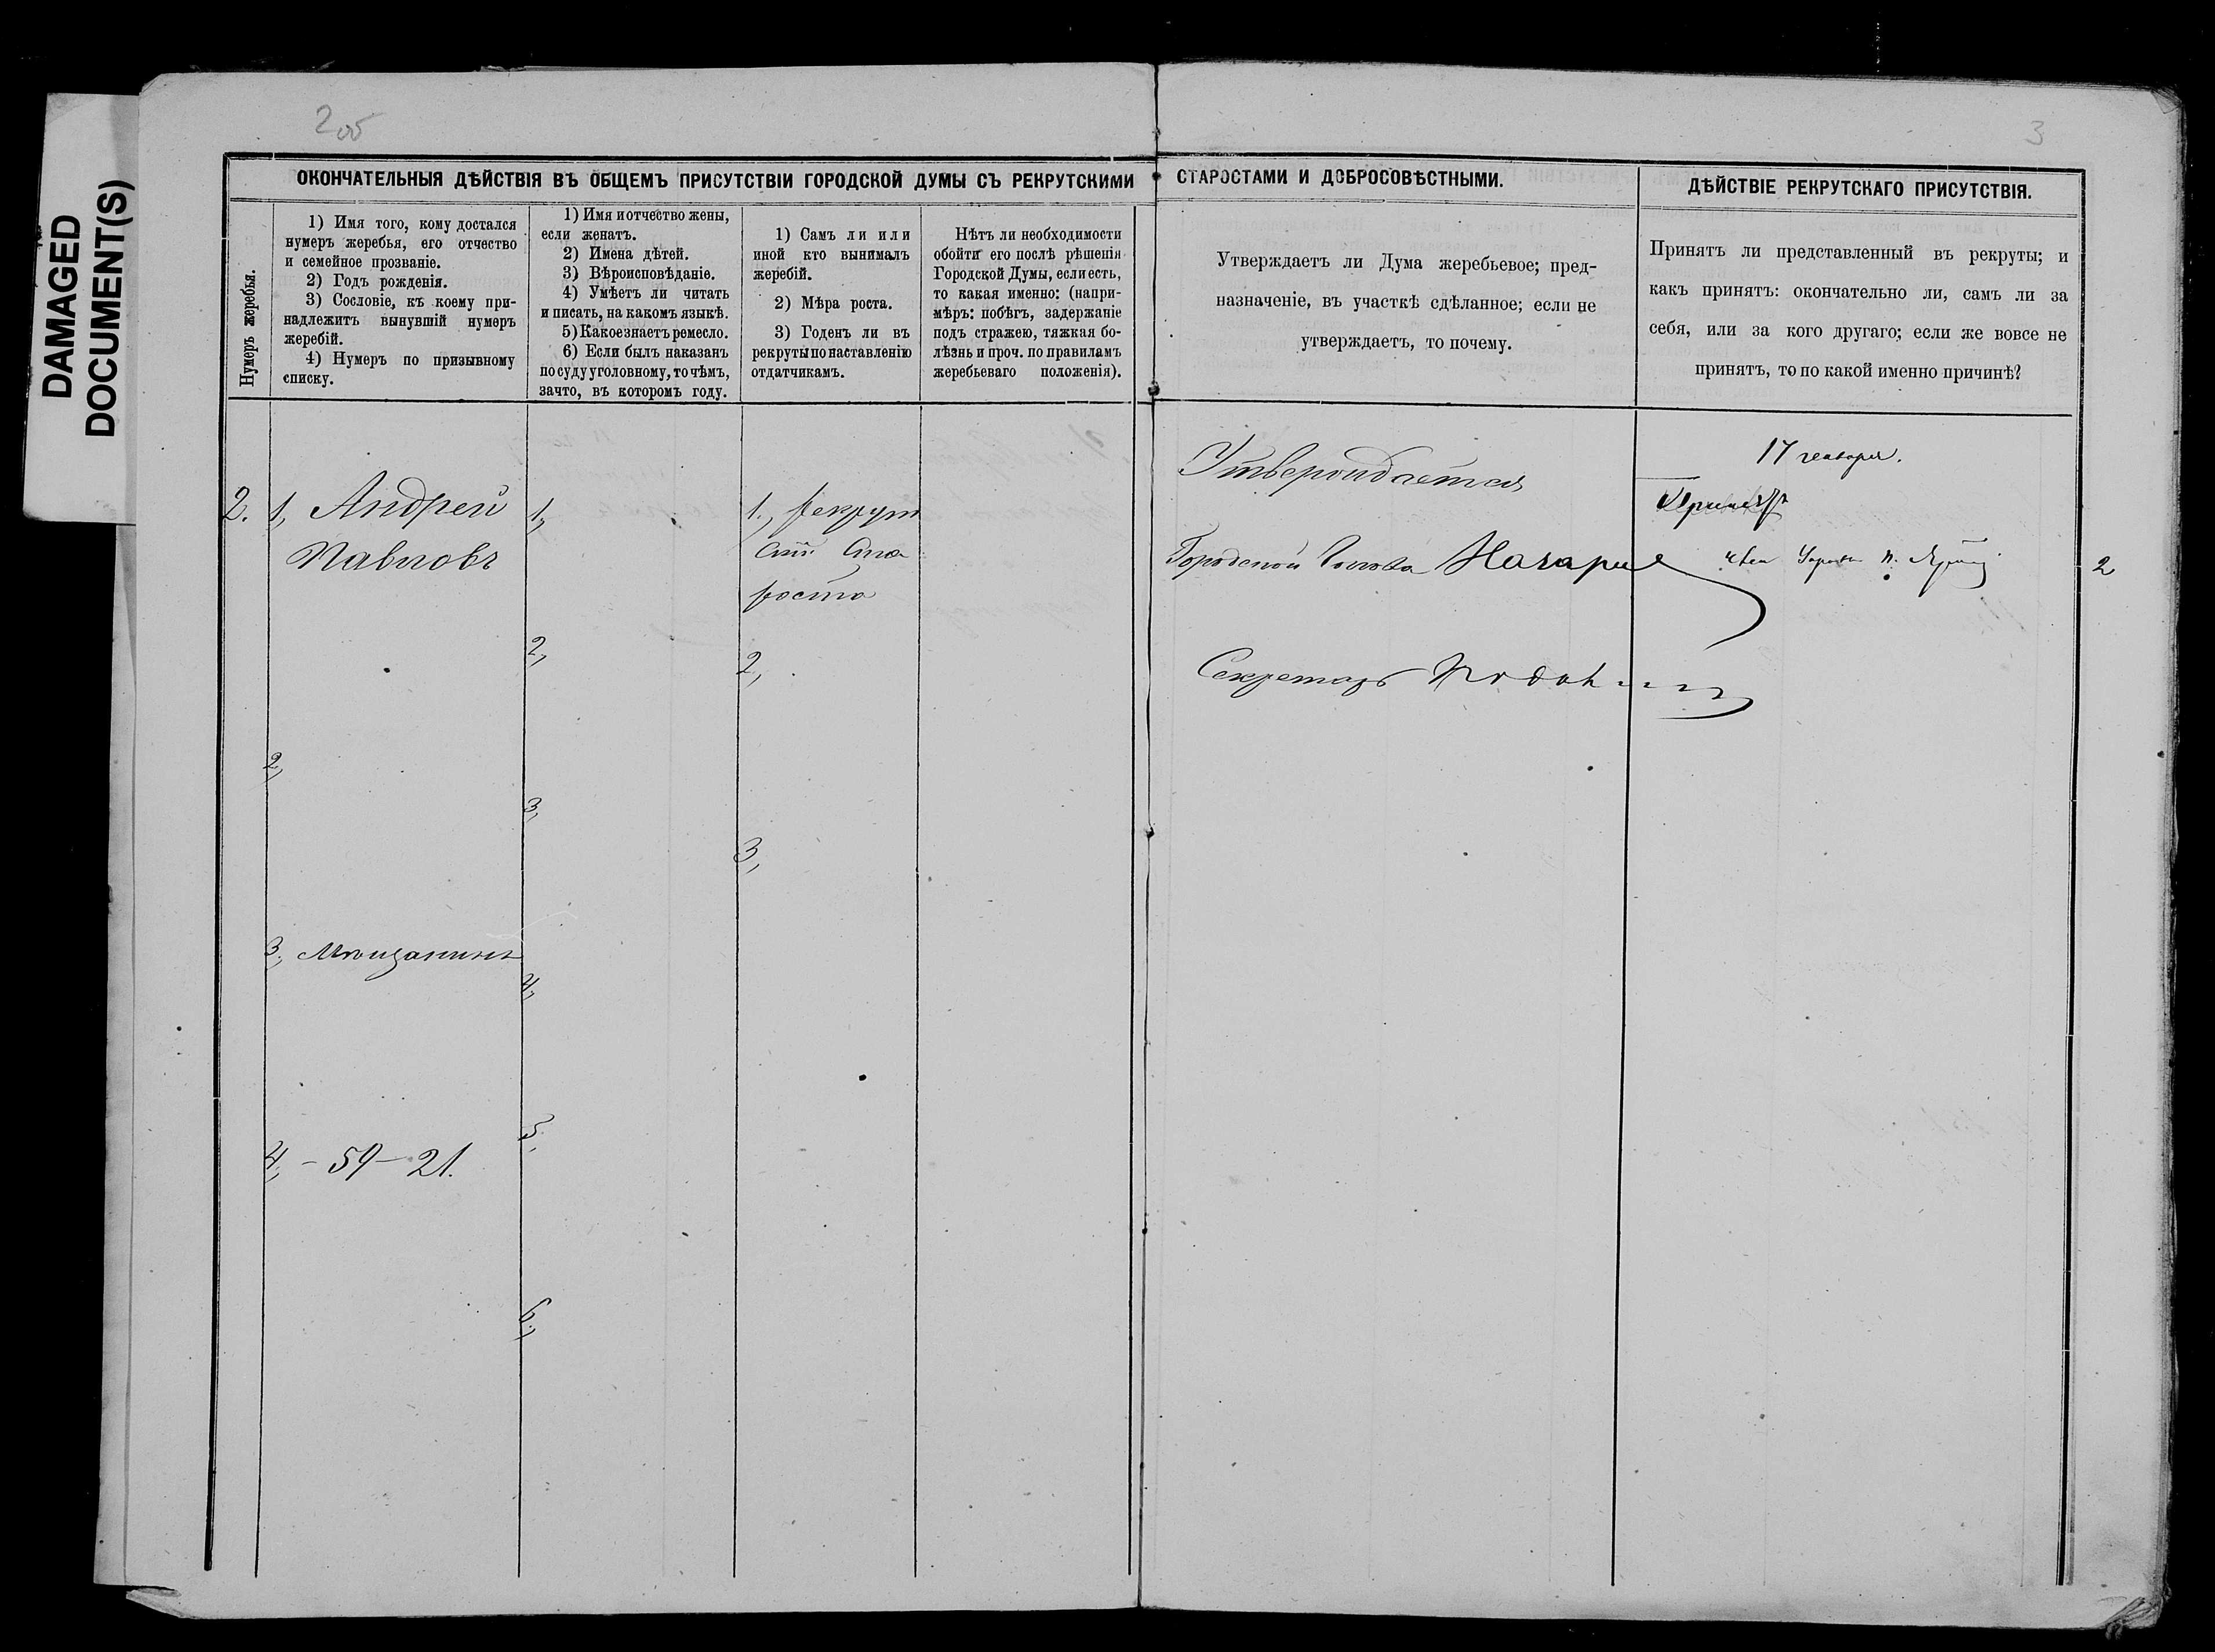 DAMAGED
DOCUMENT(S)
2об
3
ОКОНЧАТЕЛЬНЫЯ ДѢЙСТВІЯ ВЪ ОБЩЕМЪ ПРИСУТСТВІИ ГОРОДСКОЙ ДУМЫ СЪ РЕКРУТСКИМИ СТАРОСТАМИ И ДОБРОСОВѢСТНЫМИ.
ДѢЙСТВІЕ РЕКРУТСКАГО ПРИСУТСТВІЯ.
Нумеръ жеребья.
1) Имя того, кому достался
нумеръ жеребья, его отчество
и семейное прозваніе.
2) Годъ рожденія.
3) Сословіе, къ коему при-
надлежитъ вынувшій нумеръ
жеребій.
4) Нумеръ по призывному
списку.
1) Имя и отчество жены,
если женатъ.
2) Имена дѣтей.
3) Вѣроисповѣданіе.
4) Умѣетъ ли читать
и писать, на какомъ языкѣ.
5) Какое знаетъ ремесло.
6) Если былъ наказанъ
по суду уголовному, то чѣмъ,
за что, въ которомъ году.
1) Самъ ли или
иной кто вынималъ
жеребій.
2) Мѣра роста.
3) Годенъ ли въ
рекруты по наставленію
отдатчикамъ.
Нѣтъ ли необходимости
обойти его послѣ рѣшенія
Городской Думы, если есть,
то какая именно: (напри-
мѣръ: побѣгъ, задержаніе
подъ стражею, тяжкая бо-
лѣзнь и проч. по правиламъ
жеребьеваго положенія).
Утверждаетъ ли Дума жеребьевое; пред-
назначеніе, въ участкѣ сдѣланное; если не
утверждаетъ, то почему.
Принятъ ли представленный въ рекруты; и
какъ принятъ: окончательно ли, самъ ли за
себя, или за кого другаго; если же вовсе не
принятъ, то по какой именно причинѣ?
2.
1, Андрей
Павловъ
2,
3, Мѣщанинъ
4, – 59 – 21.
1,
2,
3,
4,
5,
6,
1., рекрут
скій Ста
роста
2,
3,
Утверждается
Городской Голова
Секретарь
17 генваря.
2